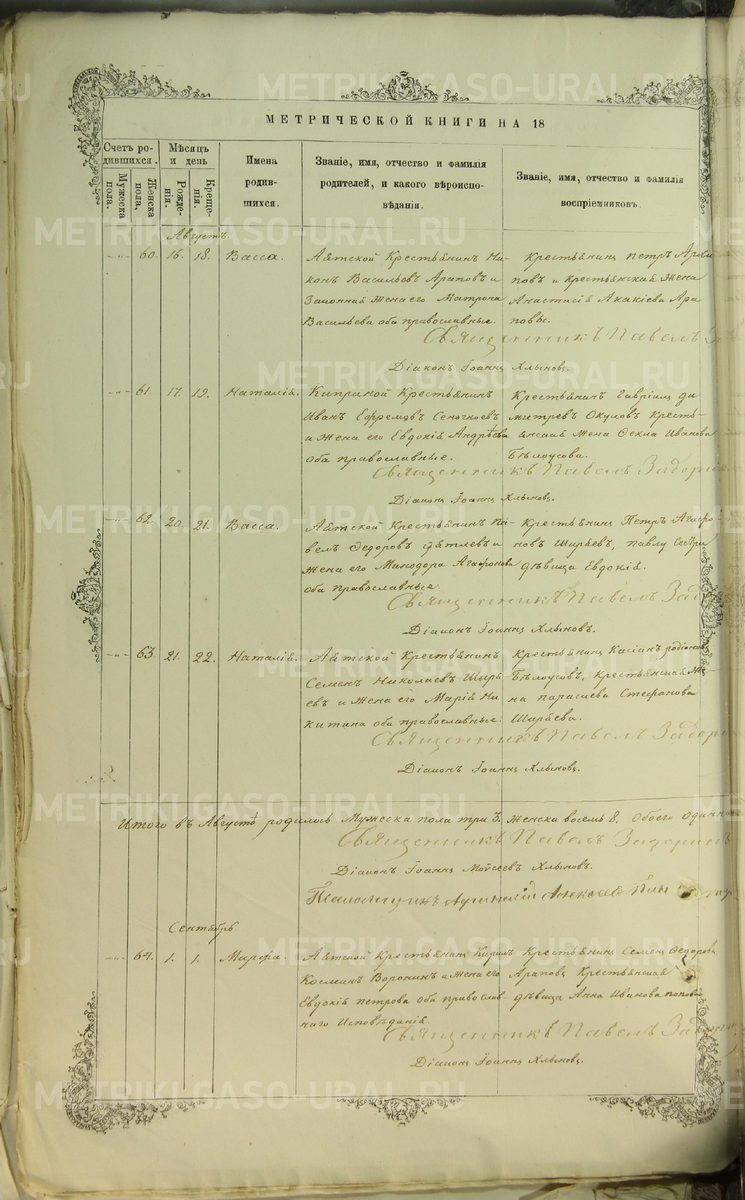 МЕТРИЧЕСКОЙ КНИГИ НА 18
Счетъ ро-
дившихся.
Мужеска
пола.
Женска
пола.
Мѣсяцъ
и день
Рожде-
нія.
Креще-
нія.
Имена
родив-
шихся.
Званіе, имя, отчество и фамилія
родителей, и какого вѣроиспо-
вѣданія.
Званіе, имя, отчество и фамилія
воспріемниковъ.
Августъ.
60. 16. 18. Васса.
Аятской Крестьянинъ Ни-
конъ Васильевъ Араповъ и
Законная жена его Матрона
Васильева оба православные.
Крестьянинъ Петръ Ара-
повъ и Крестьянская жена
Анастасія Акакіева Ара-
пова.
Священникъ Павелъ
Діаконъ Іоаннъ Хлыновъ.
61 17. 19. Наталія.
Крестьянинъ
Иванъ Ефремовъ
и жена его Евдокія Андрѣева
оба православные.
Крестьянинъ Гавріилъ Ди-
митревъ Окуловъ Кресть-
янская жена Фекла Иванова
Бѣлоусова.
Священникъ Павелъ
Діаконъ Іоаннъ Хлыновъ.
62. 20. 21. Васса.
Аятской Крестьянинъ Па-
велъ Федоровъ Дѣтлевъ и
жена его Минодора Агафонова
оба православные.
Крестьянинъ Петръ Агафо-
новъ Ширяевъ,
дѣвица Евдокія.
Священникъ Павелъ
Діаконъ Іоаннъ Хлыновъ.
63 21. 22. Наталія.
Аятской Крестьянинъ
Семенъ Николаевъ Ширя-
евъ и жена его Марія Ни-
китина оба православные.
Крестьянинъ Касіанъ Родіоновъ
Бѣлоусовъ, Крестьянская же-
на Парасиева Стефанова
Ширяева.
Священникъ Павелъ
Діаконъ Іоаннъ Хлыновъ.
Итого въ Августѣ родилось Мужеска пола три 3. Женска восемь 8. Обоего
Священникъ Павелъ
Діаконъ Іоаннъ Моѵсеевъ Хлыновъ.
Сентябрь.
64. 1. 1. Марѳа.
Аятской Крестьянинъ Кирилъ
Косминъ Воронинъ и жена его
Евдокія Петрова оба православ-
наго Исповѣданія.
Крестьянинъ Семенъ Федоровъ
Араповъ Крестьянская
дѣвица Анна Иванова
Священникъ Павелъ
Діаконъ Іоаннъ Хлыновъ.
METRIKI.GASO-URAL.RU